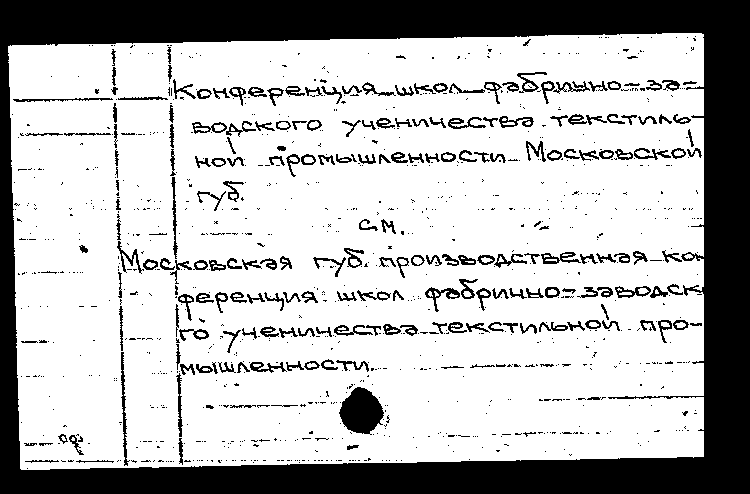 Конференция школ фабрично-за-
водского ученичества текстиль-
ной промышленности Московской
губ.
см.
Московская губ. производственная кон
ференция школ фабрично-заводск
го ученичества текстильной про-
мышленности.